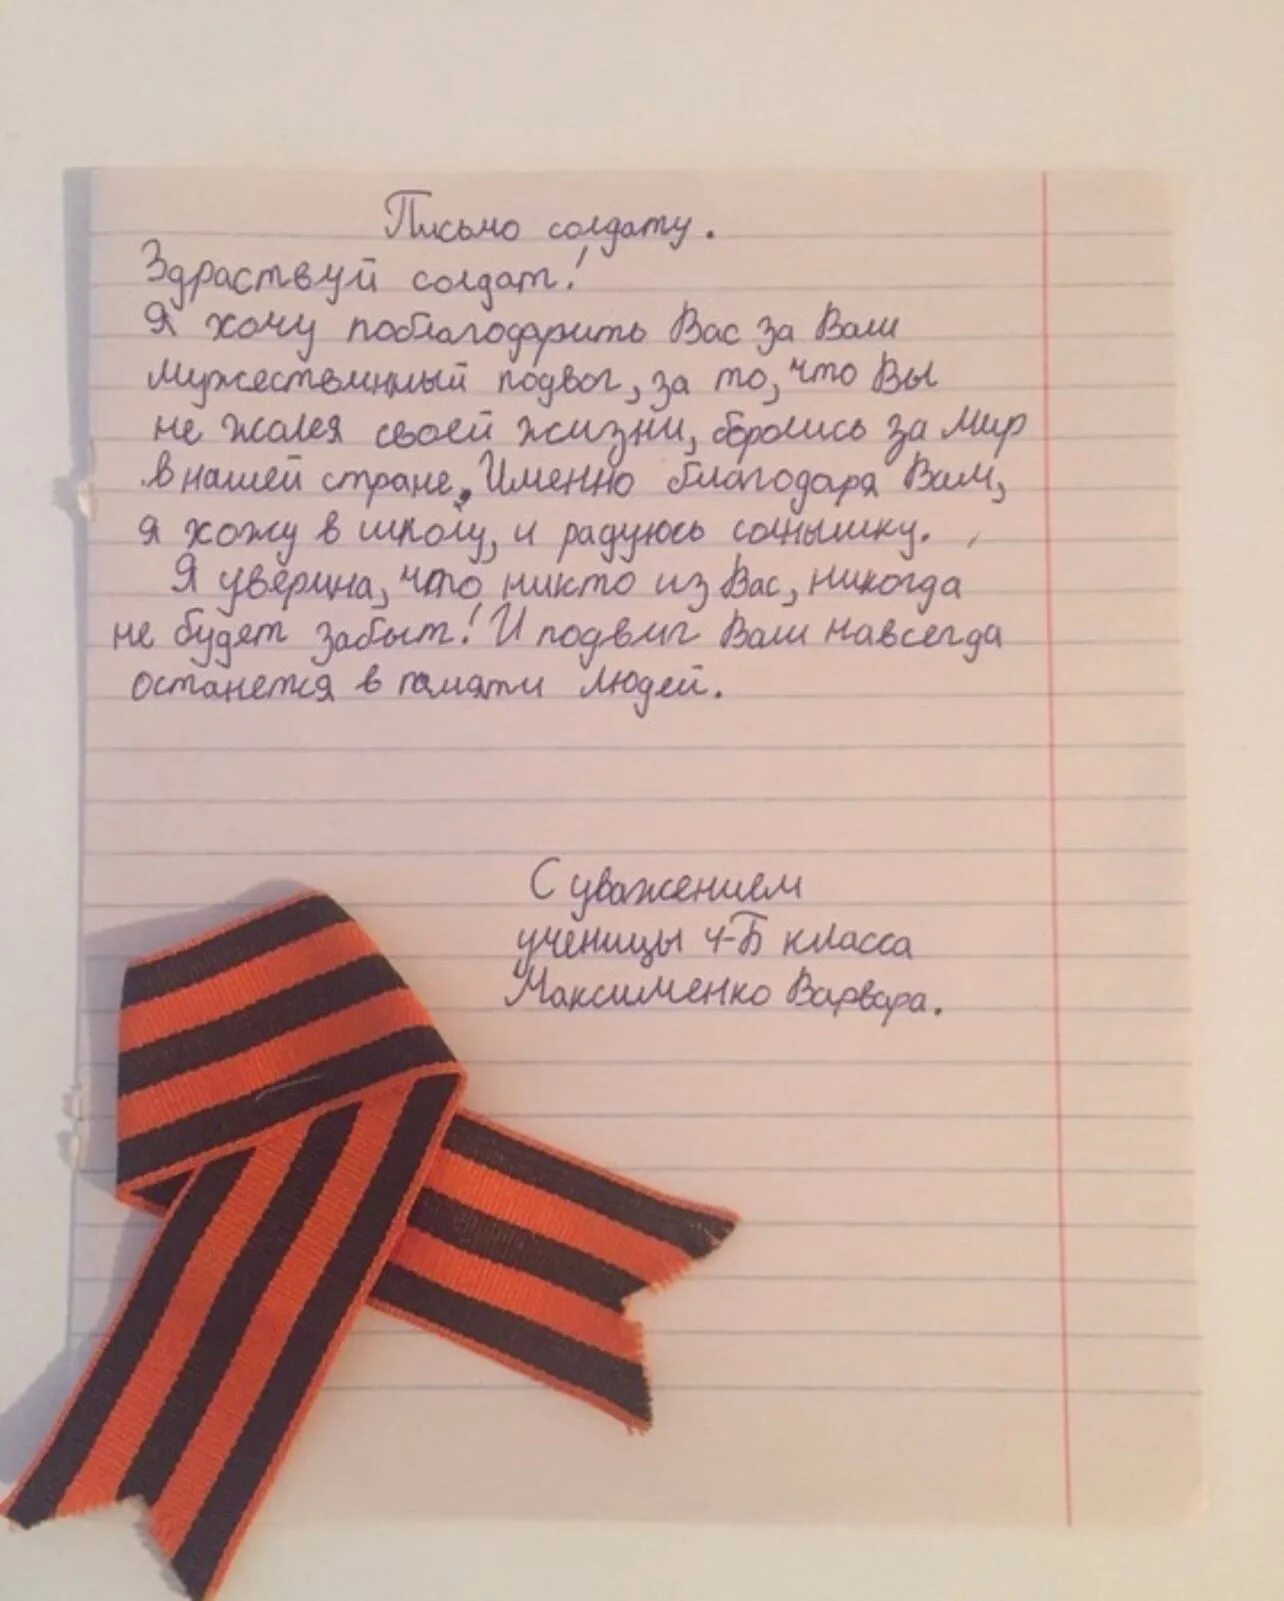 Письмо солдату.
Здраствуй солдат!
Я хочу поблагодарить Вас за Ваш
мужественный подвог, за то, что Вы
не жалея своей жизни, боролись за Мир
в нашей стране. Именно благодаря Вам,
я хожу в школу, и радуюсь солнышку.
Я уверина, что никто из Вас, никогда
не будет забыт! И подвиг Ваш навсегда
останется в памяти людей.
С уважением
ученицы 4-Б класса
Максименко Варвара.